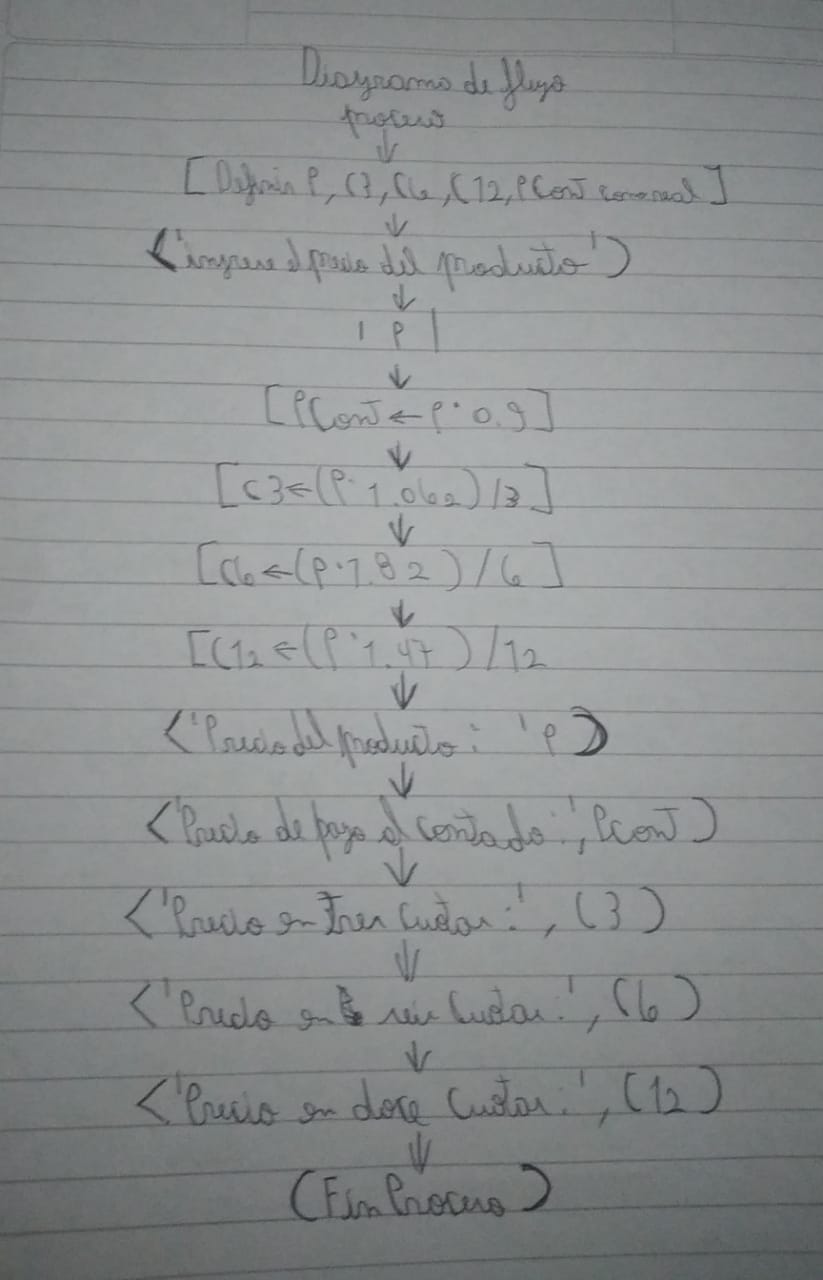 Diagrama de flujo
proceso
↓
[Definir P, C3, C6, C12, PCont como real]
↓
<'ingrese el precio del producto')
↓
| P |
↓
[PCont ← P · 0.9]
↓
[C3 ← (P · 1.062) / 3]
↓
[C6 ← (P · 1.82) / 6]
↓
[C12 ← (P · 1.47) / 12
↓
<'Precio del producto: ' P)
↓
<'Precio de pago al contado:', Pcont)
↓
<'Precio en Tres Cuotas:', C3)
↓
<'Precio en seis Cuotas:', C6)
↓
<'Precio en doce Cuotas:', C12)
↓
(Fin Proceso)